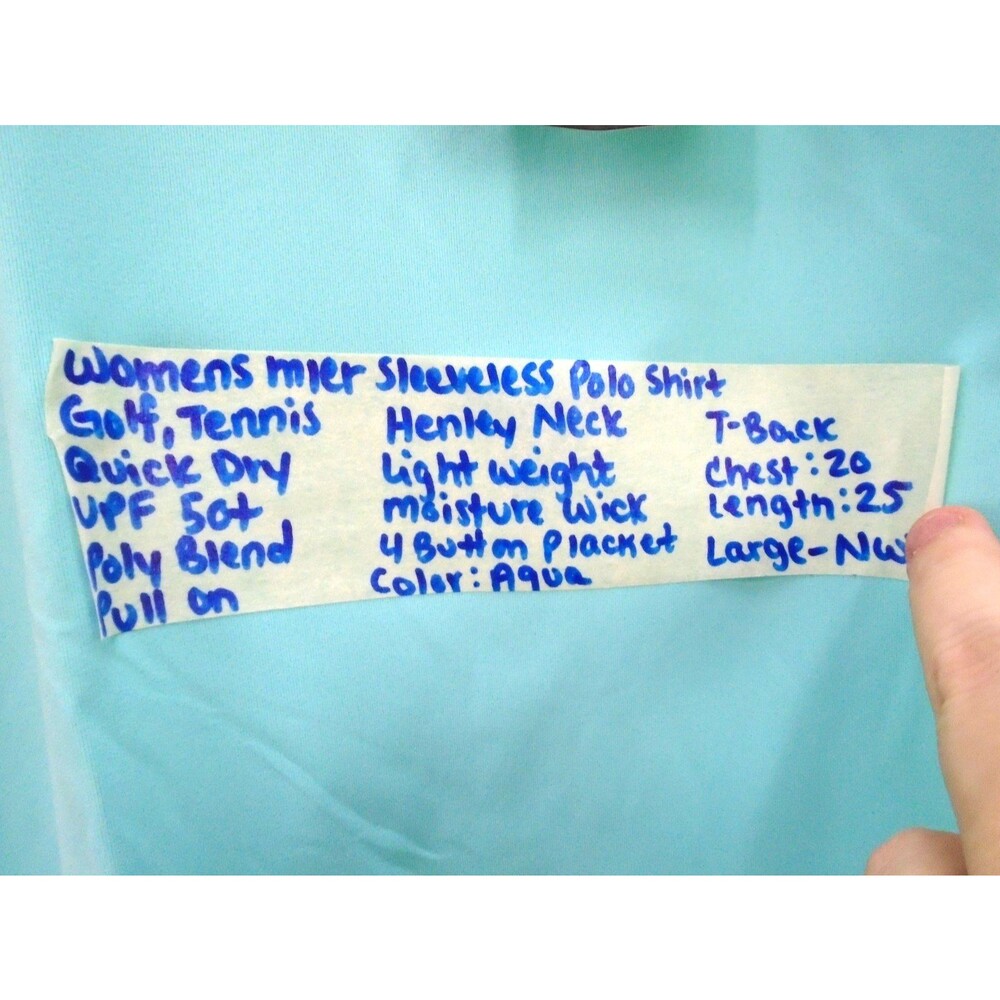 Womens mier Sleeveless Polo Shirt
Golf, Tennis Henley Neck T-Back
Quick Dry Light weight Chest: 20
UPF 50+ moisture wick Length: 25
Poly Blend 4 Button Placket Large-NW
Pull on Color: Aqua